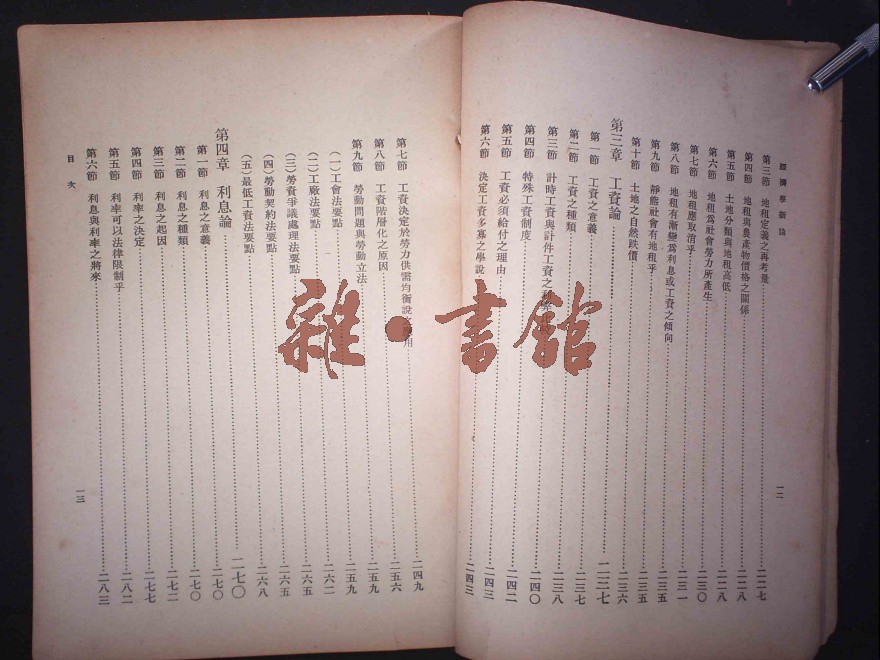 經濟學新論
一二
第三節 地租定義之再考量 二二七
第四節 地租與農產物價格之關係 二二八
第五節 土地分類與地租高低 二二八
第六節 地租爲社會勞力所產生 二三〇
第七節 地租應取消乎 二三一
第八節 地租有漸變爲利息或工資之傾向 二三五
第九節 靜態社會有地租乎 二三五
第十節 土地之自然跌價 二三六
第三章 工資論 二三七
第一節 工資之意義 二三七
第二節 工資之種類 二三八
第三節 計時工資與計件工資之 二四〇
第四節 特殊工資制度 二四二
第五節 工資必須給付之理由 二四三
第六節 決定工資多寡之學說 二四三
第七節 工資決定於勞力供需均衡說之 用 二四九
第八節 工資階層化之原因 二五六
第九節 勞動問題與勞動立法 二五九
(一)工會法要點 二五九
(二)工廠法要點 二六二
(三)勞資爭議處理法要點 二六五
(四)勞動契約法要點 二六五
(五)最低工資法要點 二六八
第四章 利息論 二七〇
第一節 利息之意義 二七〇
第二節 利息之種類 二七〇
第三節 利息之起因 二七二
第四節 利率之決定 二七七
第五節 利率可以法律限制乎 二八二
第六節 利息與利率之將來 二八三
目次
一三
雜·書館